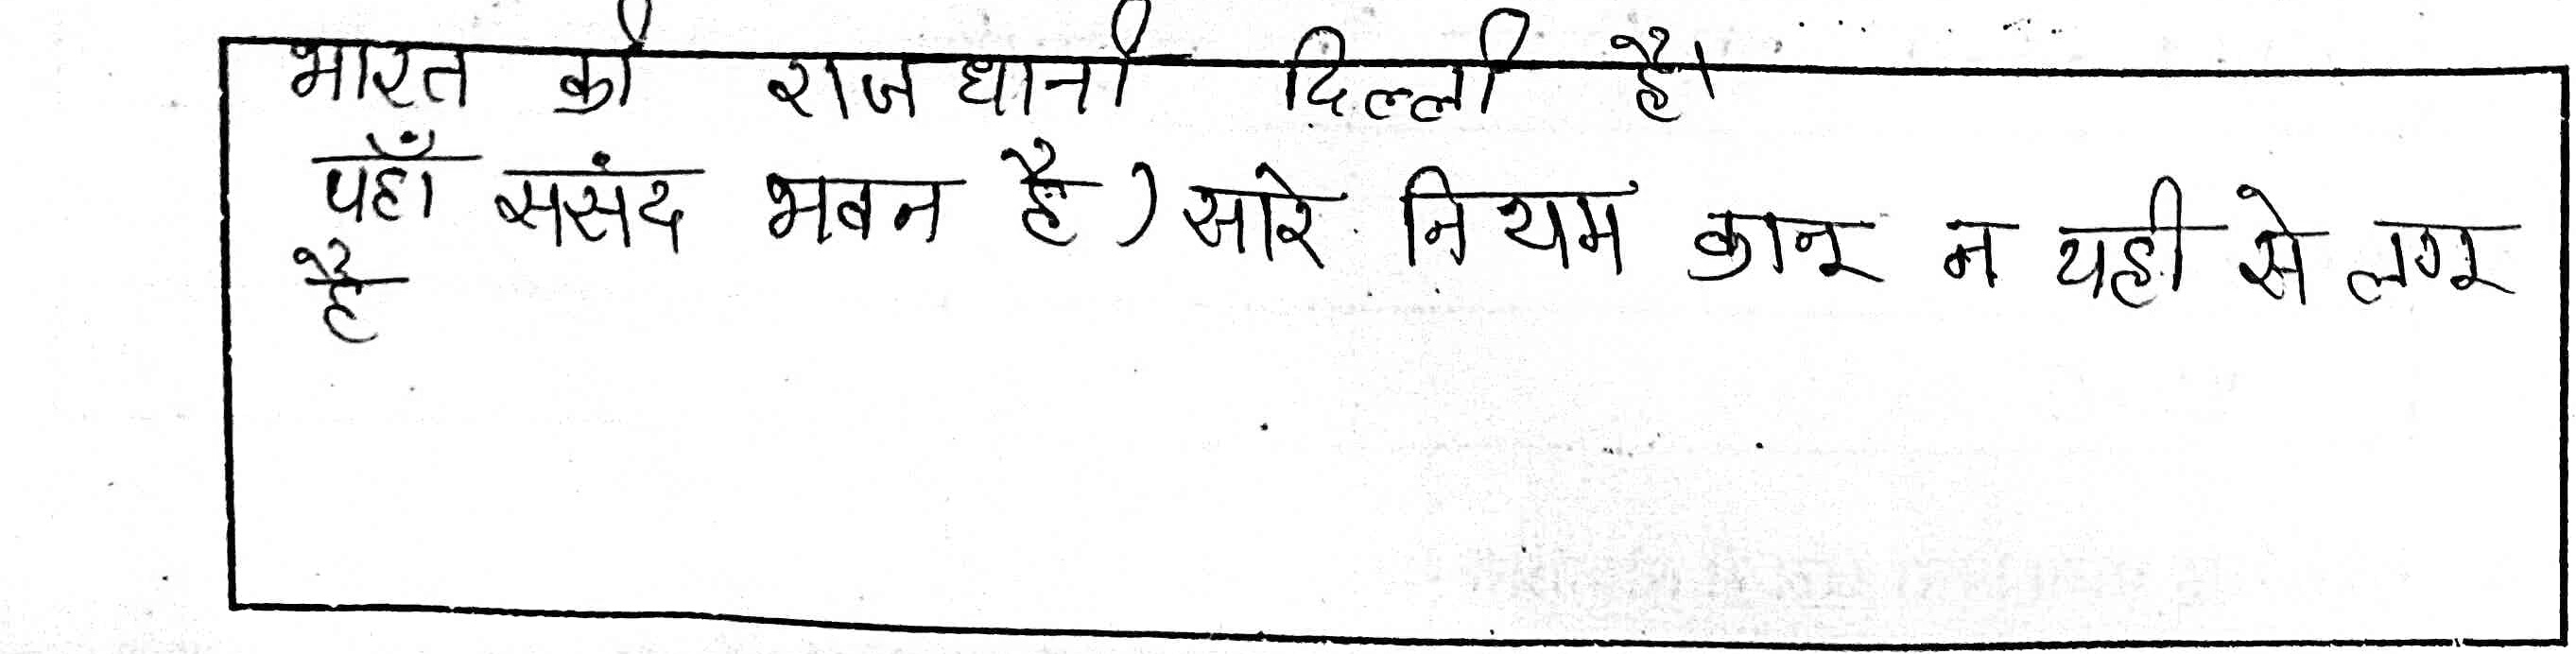 भारत की राजधानी दिल्ली है।
यहाँ ससंद भवन है, सारे नियम कानून यही से लगू
है